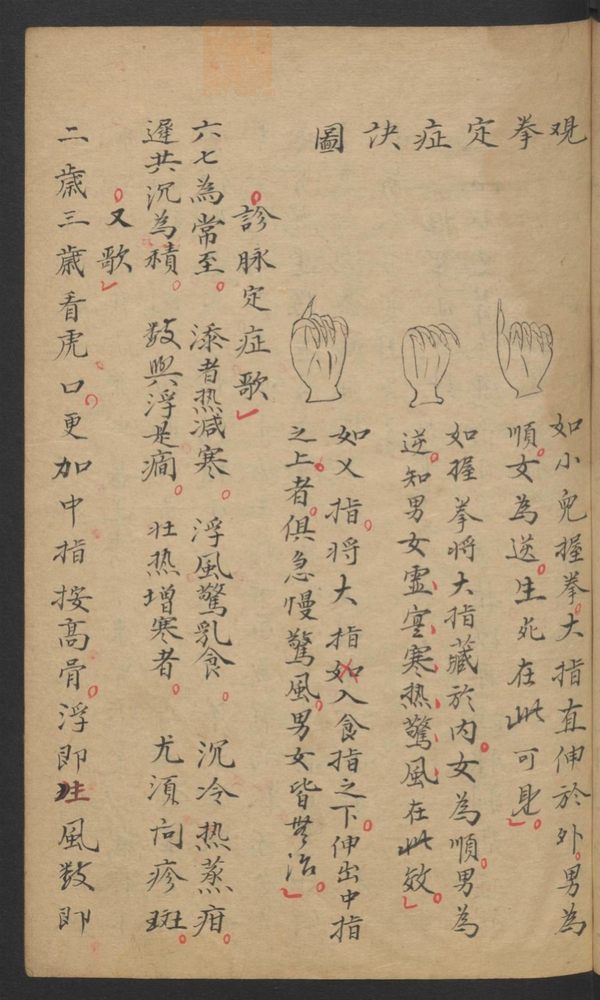 观拳定症诀圖
如小兒握拳大指直伸於外。男為
順。女為逆。生死在此可見。
如握拳將大指藏於内。女為順。男為
逆。知男女虚寔寒热驚風在此效。
如乂指。将大指如入食指之下。伸出中指
之上者。俱急慢驚風。男女皆無治。
診脉定症歌
六七為常至。添者热减寒。浮風驚乳食。沉冷热蒸疳。
遲共沉為積。数與浮是癎。壮热增寒者。尤須问疹斑。
又歌
二歳三歳看虎口。更加中指按高骨。浮即風数即